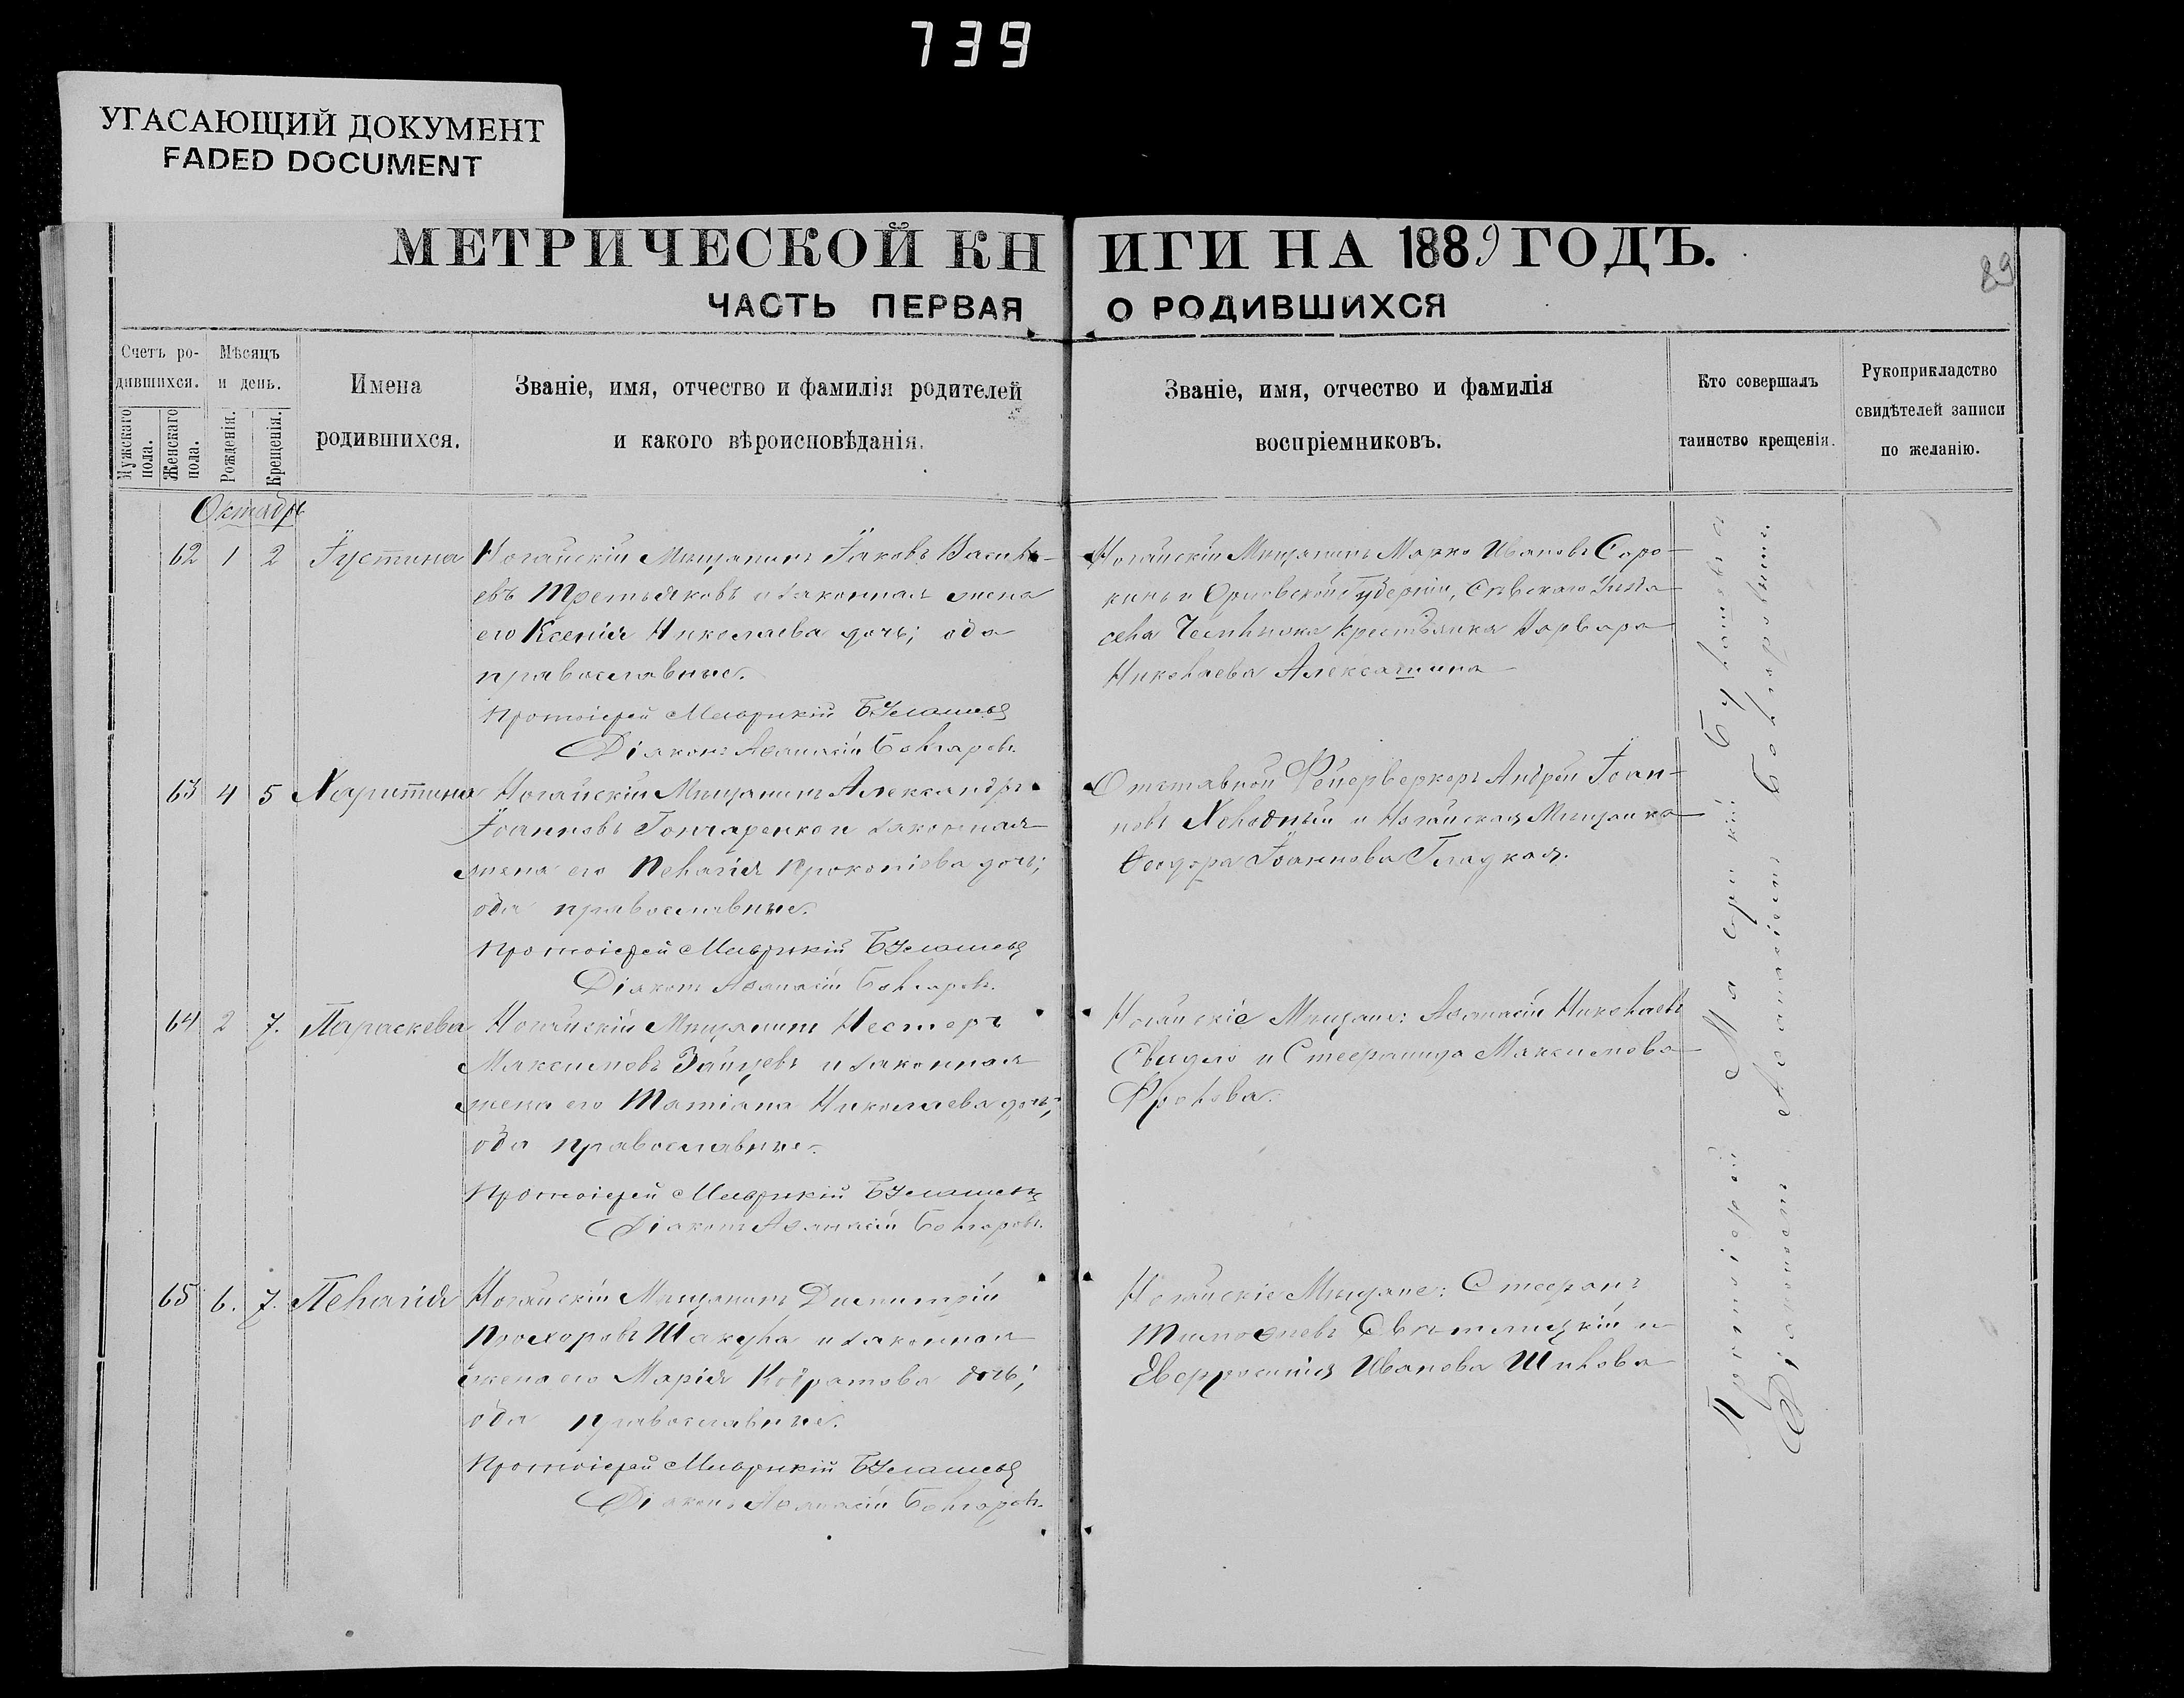 739
УГАСАЮЩИЙ ДОКУМЕНТ
FADED DOCUMENT
МЕТРИЧЕСКОЙ КНИГИ НА 1889 ГОДЪ.
89
ЧАСТЬ ПЕРВАЯ О РОДИВШИХСЯ
Счетъ ро-
дившихся.
Мужскаго пола.
Женскаго пола.
Мѣсяцъ
и день.
Рожденія.
Крещенія.
Имена
родившихся.
Званіе, имя, отчество и фамилія родителей
и какого вѣроисповѣданія.
Званіе, имя, отчество и фамилія
воспріемниковъ.
Кто совершалъ
таинство крещенія.
Рукоприкладство
свидѣтелей записи
по желанію.
Октябрь
62 1 2 Іустина
Ногайскій Мѣщанинъ Іаковъ Василі-
евъ Третьяковъ и законная жена
его Ксенія Николаева дочь; оба
православные.
Протоіерей Маврикій Булашевъ
Діаконъ Аѳанасій Болгаровъ.
Ногайскій Мѣщанинъ Марко Ивановъ Соро-
кинъ и Орловской Губерніи, Сѣвскаго Уѣзда
села крестьянка Варвара
Николаева Алексашина
63 4 5 Харитина
Ногайскій Мѣщанинъ Александръ
Іоанновъ Гончаренко и законная
жена его Пелагія Прокопіева дочь;
оба православные.
Протоіерей Маврикій Булашевъ
Діаконъ Аѳанасій Болгаровъ.
Отставной Фейерверкеръ Андрей Іоан-
новъ Холодный и Ногайская Мѣщанка
Ѳеодора Іоаннова Гладкая.
64 2 7. Параскева
Ногайскій Мѣщанинъ Несторъ
Максимовъ Зайцевъ и законная
жена его Татіана Николаева дочь;
оба православные.
Протоіерей Маврикій Булашевъ
Діаконъ Аѳанасій Болгаровъ.
Ногайскіе Мѣщане: Аѳанасій Николаевъ
и Стефанида Максимова
Фролова.
65 6. 7. Пелагія
Ногайскій Мѣщанинъ Димитрій
Прохоровъ Шакула и законная
жена его Марія Кодратова дочь;
оба православные.
Протоіерей Маврикій Булашевъ
Діаконъ Аѳанасій Болгаровъ.
Ногайскіе Мѣщане: Стефанъ
Тимоѳеевъ и
Евфросинія Иванова Шилова
Протоіерей Маврикій Булашевъ
Діаконъ Аѳанасій Болгаровъ.